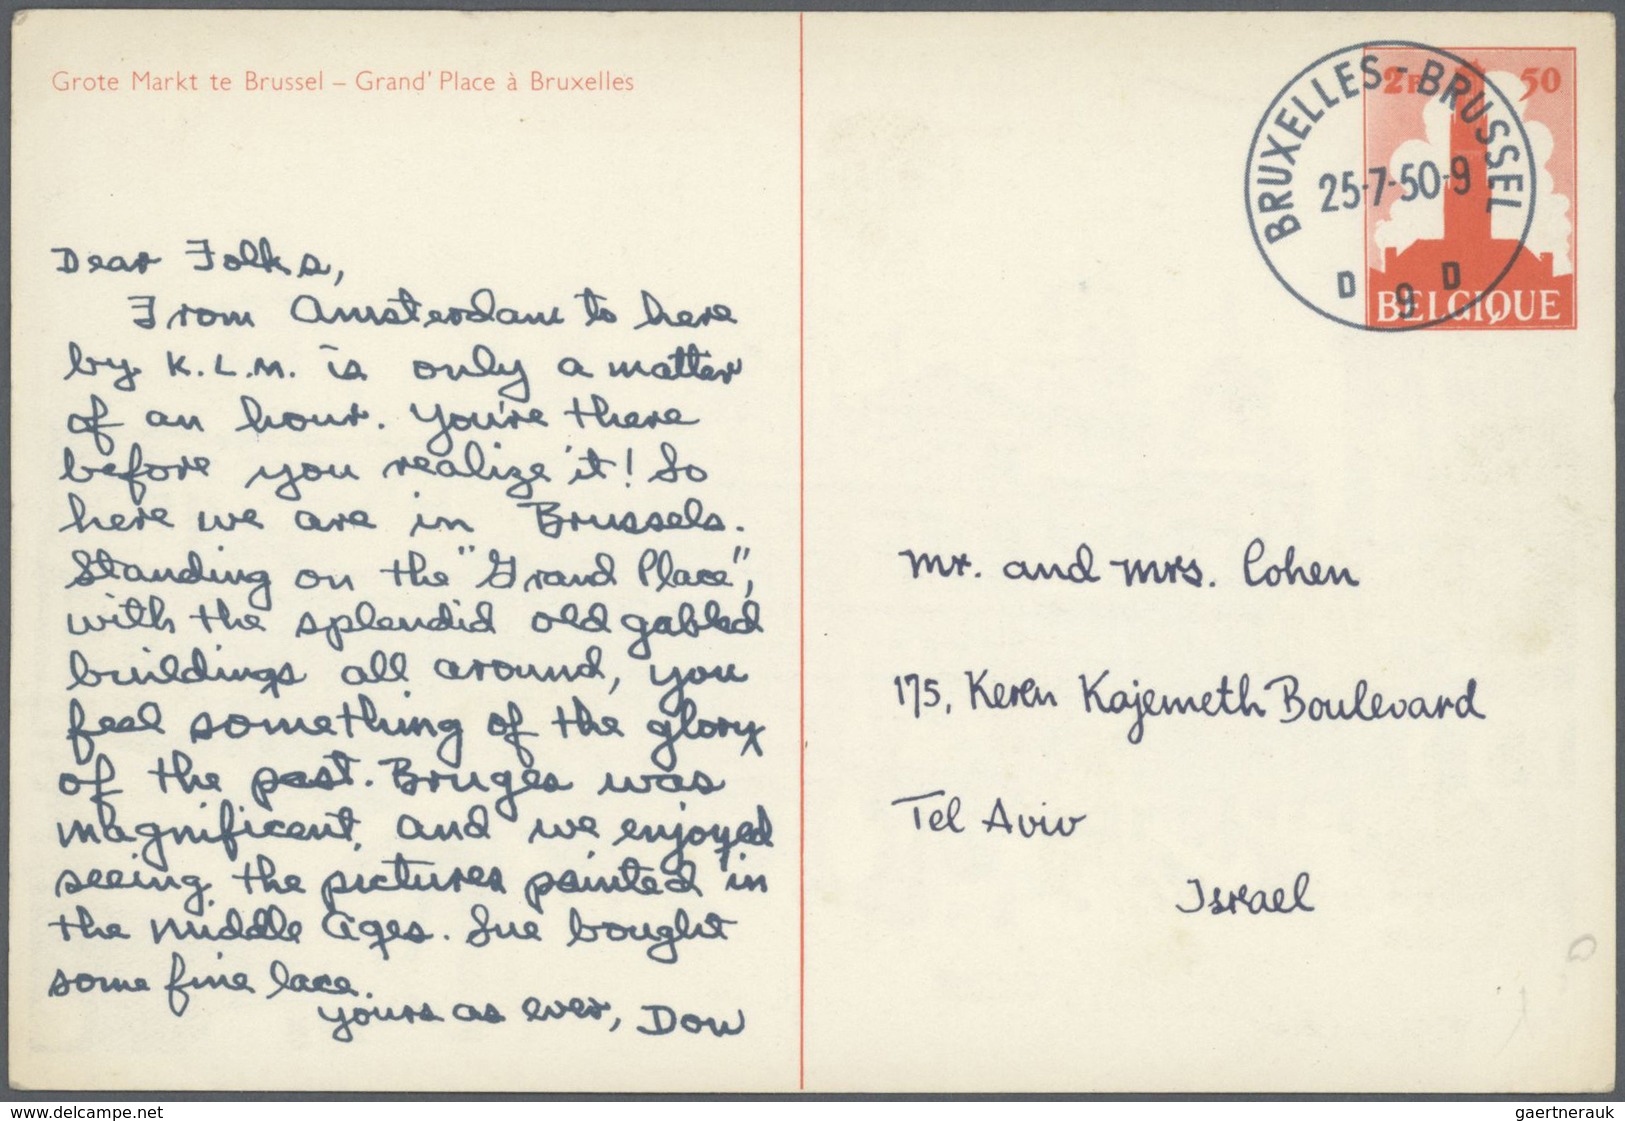 Grote Markt te Brussel – Grand' Place à Bruxelles
Dear Folks,
From Amsterdam to here
by K.L.M. is only a matter
of an hour. You're there
before you realize it! So
here we are in Brussels.
Standing on the "Grand Place",
with the splendid old gabled
buildings all around, you
feel something of the glory
of the past. Bruges was
magnificent, and we enjoyed
seeing the pictures painted in
the Middle Ages. Sue bought
some fine lace.
Yours as ever, Don
BRUXELLES-BRUSSEL
25-7-50-9
D 9 D
2F 50
BELGIQUE
Mr. and Mrs. Cohen
175, Keren Kajemeth Boulevard
Tel Aviv
Israel
www.delcampe.net
gaertnerauk